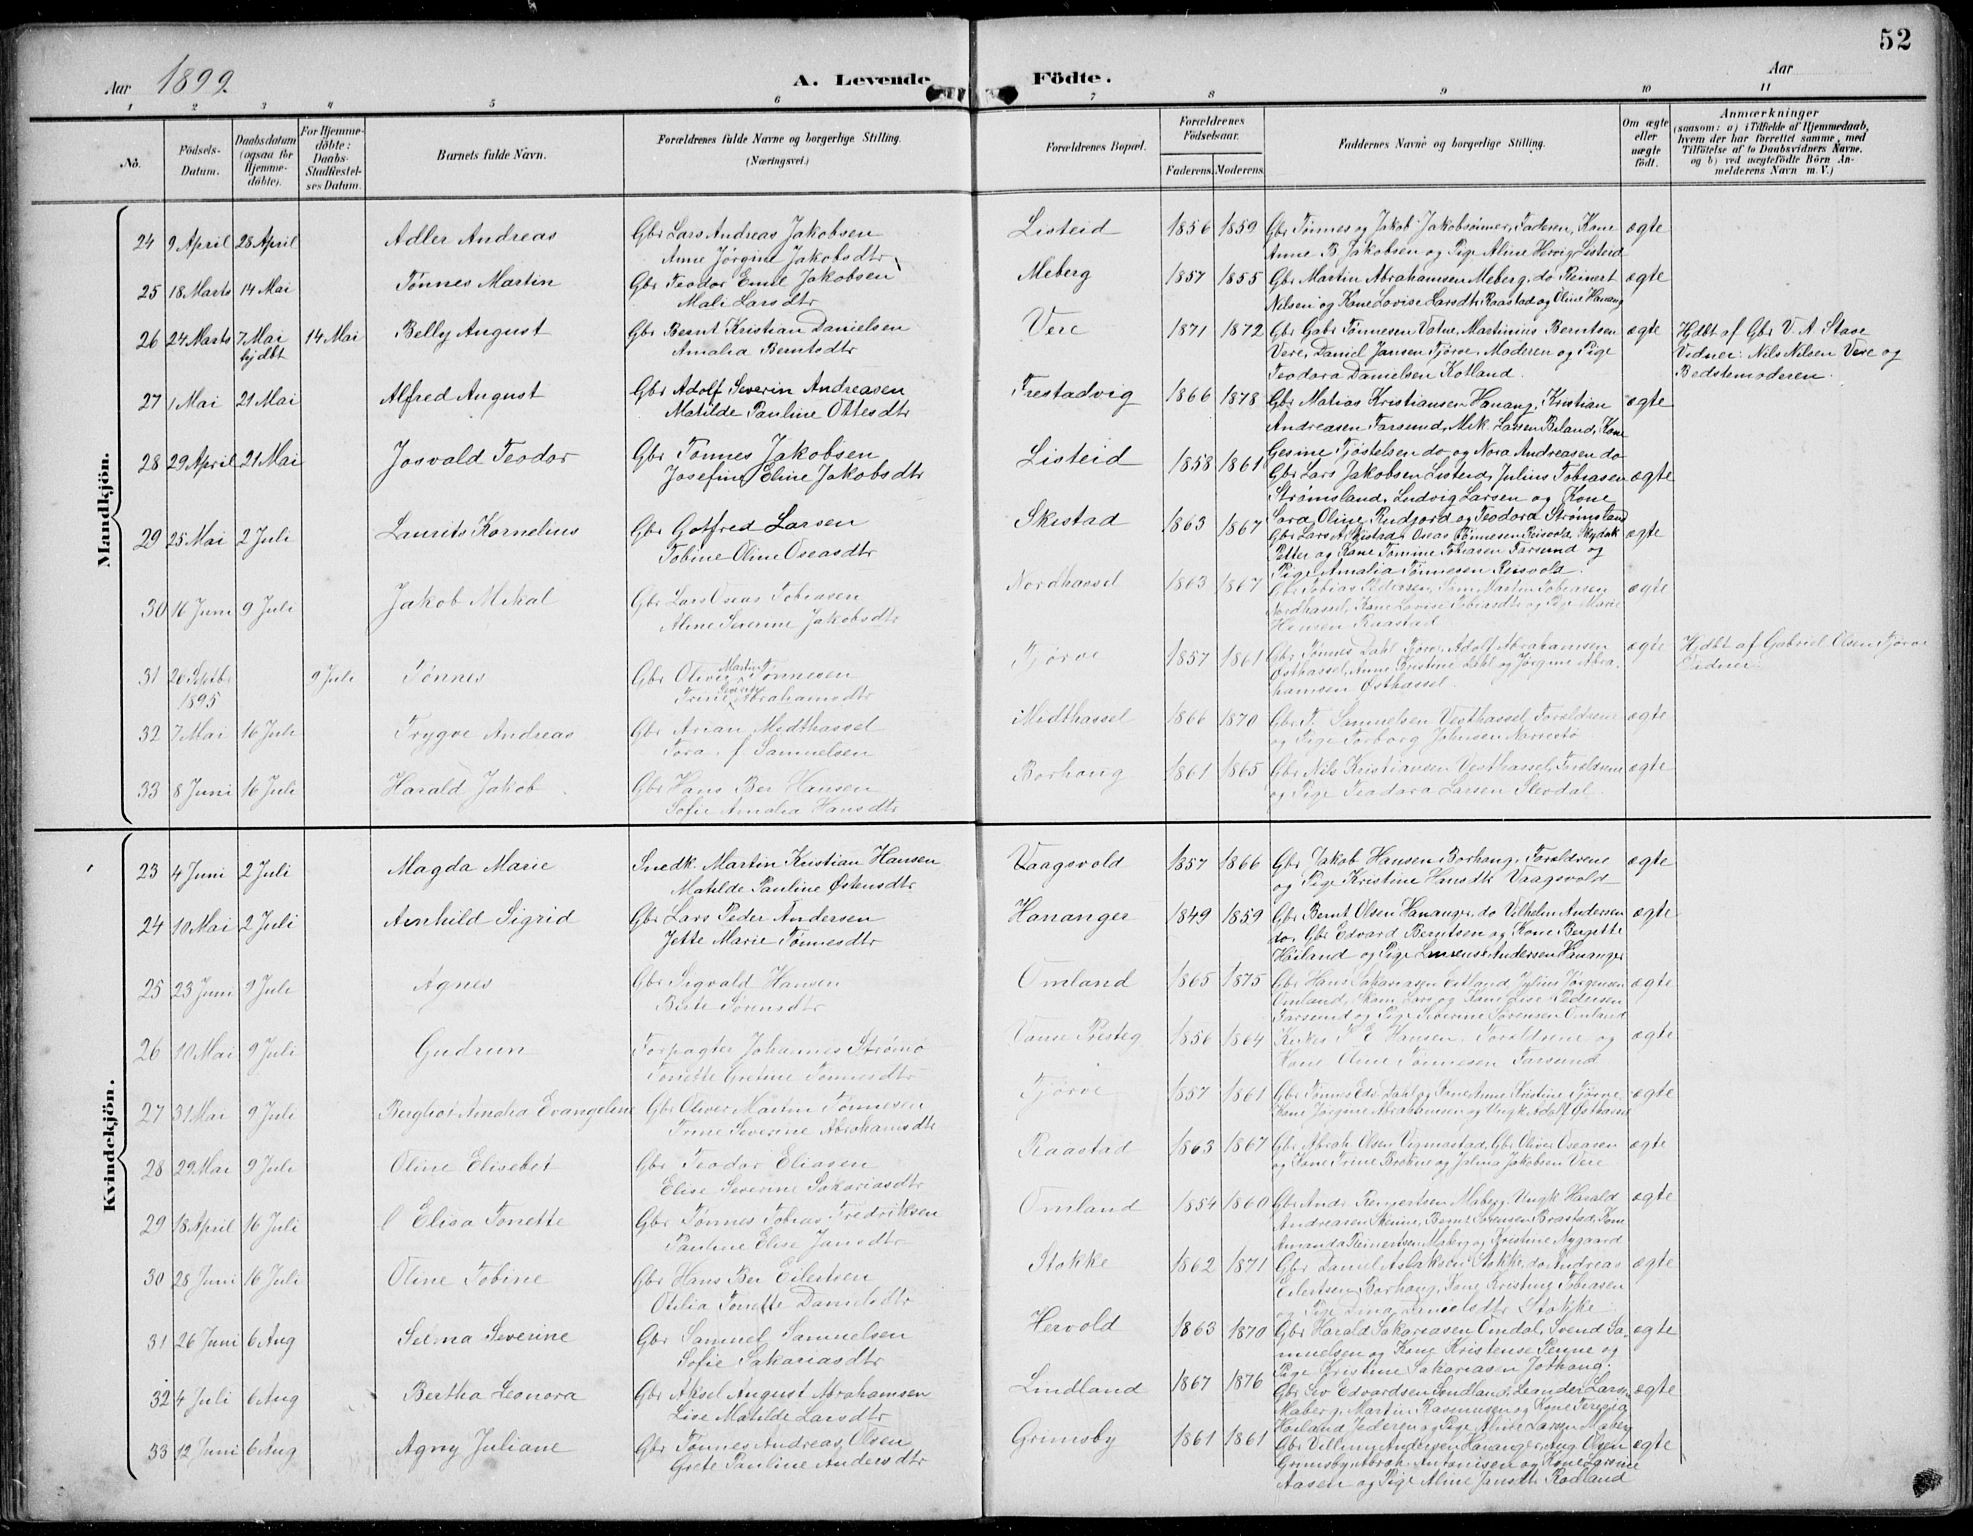 52
Aar 1899
A. Levende Födte.
Aar
1 2 3 4 5 6 7 8 9 10 11
No.
Födsels-Datum.
Daabsdatum (ogsaa for Hjemmedöbte).
For Hjemmedöbte: Daabs-Stadfæstelses Datum.
Barnets fulde Navn.
Forældrenes fulde Navne og borgerlige Stilling. (Næringsvei.)
Forældrenes Bopæl.
Forældrenes Födselsaar. Faderens. Moderens.
Faddernes Navne og borgerlige Stilling.
Om ægte eller uægte födt.
Anmærkninger (saasom: a) i Tilfælde af Hjemmedaab, hvem der har forrettet samme, med Tilföielse af to Daabsvidners Navne. og b) ved uægtefödte Börn Anmelderens Navn m. V.)
Mandkjön.
24 9 April 28 April Adler Andreas Gbr Lars Andreas Jakobsen Listeid 1856 1859 Gbr Tønnes og Jakob Jakobsønner, Faderen, Kone ægte
Anne Jørgine Jakobsdtr Anne B Jakobsen og Pige Aline Listeid
25 18 Marts 14 Mai Tønnes Martin Gbr Teodor Emil Jakobsen Meberg 1857 1855 Gbr Martin Abrahamsen Meberg, do Reinert ægte
Mali Larsdtr Nilsen og Kone Lovise Larsdtr Raastad og Oline Hanang
26 24 Marts 7 Mai hjdbt 14 Mai Belly August Gbr Bernt Kristian Danielsen Vere 1871 1872 Gbr Gabr Tønnesen Vatne, Martinius Berntsen ægte Hjdbt af Gbr V. A Stave
Amalia Berntsdtr Vere, Daniel Jansen Tjørve, Moderen og Pige Vidner: Nils Nilsen Vere og
Teodora Danielsen Kotland. Bedstemoderen.
27 1 Mai 21 Mai Alfred August Gbr Adolf Severin Andreasen Frestadvig 1866 1878 Gbr Matias Kristiansen Hanang, Kristian ægte
Matilde Pauline Ottesdtr Andreasen Farsund, Mik. Larsen Beland, Kone
Gesine Tjøstelsen do og Nora Andreasen do
28 29 April 21 Mai Josvald Teodor Gbr Tønnes Jakobsen Listeid 1858 1861 Gbr Lars Jakobsen Listeid, Julius Tobiasen ægte
Josefine Eline Jakobsdtr Strømsland, Ludvig Larsen og Kone
Sara Oline Rudjord og Teodora Strømsland
29 25 Mai 2 Juli Laurits Kornelius Gbr Gotfred Larsen Skistad 1863 1867 Gbr Lars A Skistad, Oseas Tønnesen Reisvold, ægte
Tobine Oline Oseasdtr Petter og Kone Tomine Tobiasen Farsund og
Pige Amalia Tønnesen Reisvold.
30 16 Juni 9 Juli Jakob Mikal Gbr Lars Oseas Tobiasen Nordhassel 1863 1867 Gbr Tobias Pedersen, Martin Tobiasen ægte
Aline Severine Jakobsdtr Nordhassel, Kone Lovise Tobiasdtr og Pige Marie
Hansen Raastad
31 1895 9 Juli Tønnes Gbr Oliver Martin Tønnesen Tjørve 1857 1861 Gbr Tønnes Dahl Tjørve, Adolf Abrahamsen ægte Hjdbt af Gabriel Olsen Tjørve
Trine Severine Abrahamsdtr Østhassel, Anne Kristine Dahl og Jørgine Abrahamsen Østhassel Vidner:
32 7 Mai 16 Juli Trygve Andreas Gbr Arian Midthassel Midthassel 1866 1870 Gbr T. Samuelsen Vesthassel, Forældrene ægte
Tora f. Samuelsen og Pige Torborg Johnsen
33 8 Juni 16 Juli Harald Jakob Gbr Hans Ber Hansen Borhaug 1861 1865 Gbr Nils Kristiansen Vesthassel, Forældrene ægte
Sofie Amalia Hansdtr og Pige Teodora Larsen
Kvindekjön.
23 4 Juni 2 Juli Magda Marie Snedk. Martin Kristian Hansen Vaagsvold 1857 1866 Gbr Jakob Hansen Borhaug, Forældrene ægte
Matilde Pauline Østensdtr og Pige Kristine Hansdtr Vaagsvold
24 10 Mai 2 Juli Arnhild Sigrid Gbr Lars Peder Andersen Hananger 1849 1859 Gbr Bernt Olsen Hananger, do Vilhelm Andersen ægte
Jette Marie Tønnesdtr do, Gbr Edvard Berntsen og Kone Bergitte
Høiland og Pige Laurense Andersen Hananger
25 23 Juni 9 Juli Agnes Gbr Sigvald Hansen Omland 1865 1875 Gbr Hans Sakariasen Eitland, Julius Jørgensen ægte
Berte Sørensdtr Omland, Skom. Lars og Kone Lise Pedersen
Farsund og Pige Severine Sørensen Omland
26 10 Mai 9 Juli Gudrun Forpagter Johannes Strømø Vanse Presteg 1856 1864 Hansen, Forældrene og ægte
Tonette Gretine Tønnesdtr Kone Oline Tønnesen Farsund
27 31 Mai 9 Juli Bergliot Amalia Evangeline Gbr Oliver Martin Tønnesen Tjørve 1857 1861 Gbr Tønnes Edv. Dahl og Kone Anne Kristine Tjørve, ægte
Trine Severine Abrahamsdtr Kone Jørgine Abrahamsen og Ungk Adolf Østhassel
28 29 Mai 9 Juli Oline Elisebet Gbr Teodor Eliasen Raastad 1863 1867 Gbr Abrah Olsen Vigmostad, Gbr Oliver Oseasen ægte
Elise Severine Sakariasdtr og Kone Trine Brekne og Jakobsen Vere
29 18 April 16 Juli Elisa Tonette Gbr Tønnes Tobias Fredriksen Omland 1854 1860 Gbr Andr. Reinertsen Maberg, Ungk Harald ægte
Pauline Elise Jansdtr Andreasen Skeime, Bernt Sørensen Brastad, Kone
Amanda Reinertsen Maberg og Kristine Nygaard
30 28 Juni 16 Juli Oline Tobine Gbr Hans Ber Eilertsen Stokke 1862 1871 Gbr Daniel Aslaksen Stokke, do Andreas ægte
Otilia Tonette Danielsdtr Eilertsen Borhaug, Kone Kristine Tobiasen
og Pige Lina Danielsdtr Stokke
31 26 Juni 6 Aug Selma Severine Gbr Samuel Samuelsen Hervold 1863 1870 Gbr Harald Sakariasen Omdal, Svend Sa- ægte
Sofie Sakariasdtr muelsen og Kone Kristense Penne og
Pige Kristine Sakariasen Jøthaug.
32 4 Juli 6 Aug Bertha Leonora Gbr Aksel August Abrahamsen Lindland 1867 1876 Gbr Edvardsen Lindland, Leander Larsen ægte
Lise Matilde Larsdtr Maberg, Martin Rasmusen og Kone Teresia
Høiland Jederen og Pige Aline Larsen Maberg
33 12 Juni 6 Aug Agny Juliane Gbr Tønnes Andreas Olsen Grimsby 1861 1861 Gbr Villum Andersen Hananger, Aug Olsen ægte
Grete Pauline Andersdtr Grimsby, Abrah. Antonisen og Kone Larsine
Aasen og Pige Aline Jansdtr Rødland